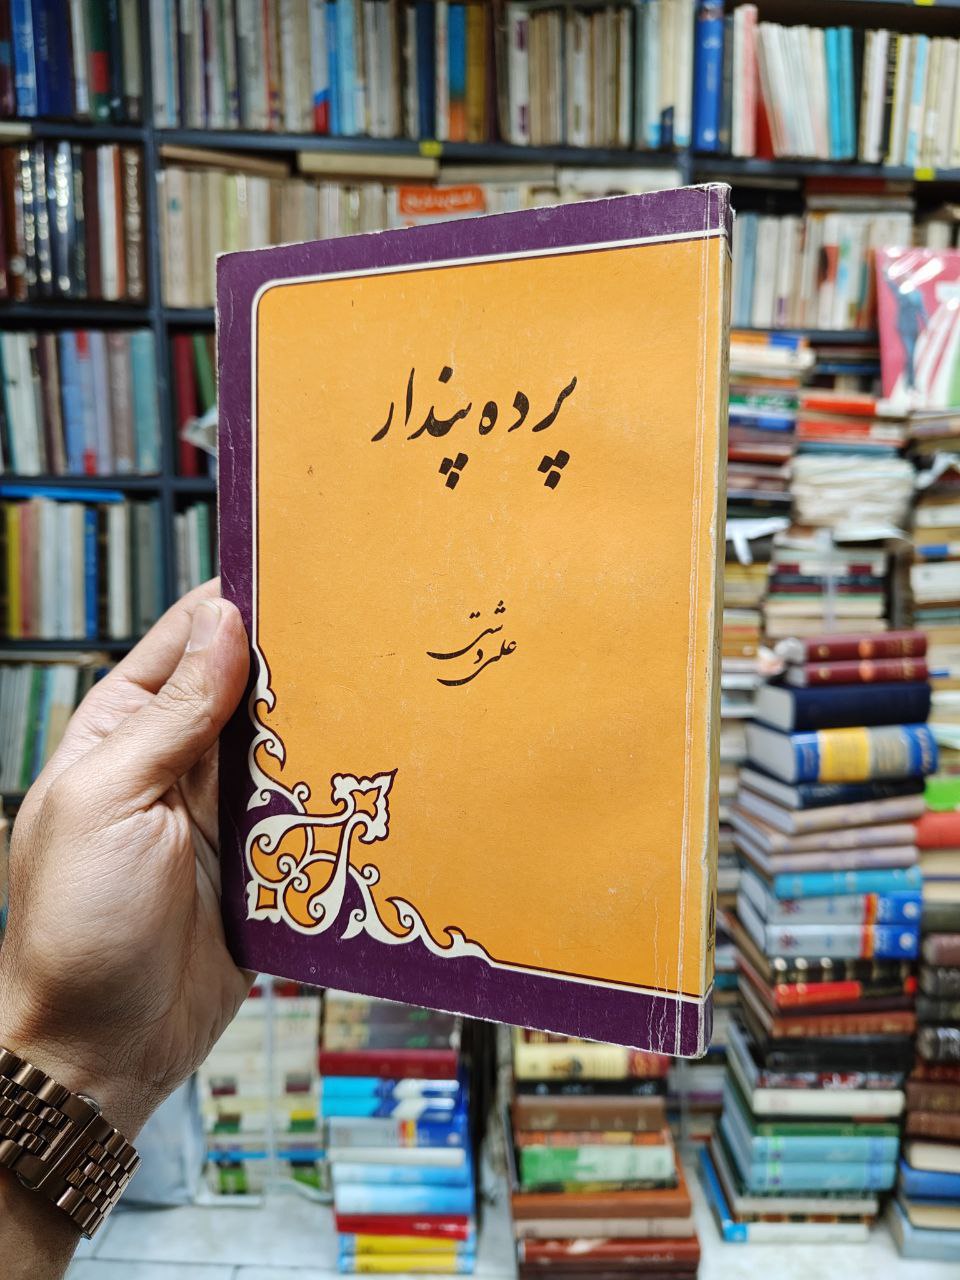 پرده پندار
علی دشتی